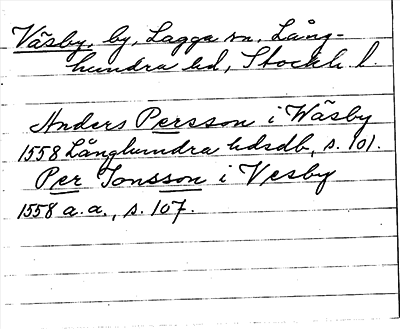 Väsby, by, Lagga sn, Lång-
hundra hd, Stockh. l.
Anders Persson i Wäsby
1558 Långhundra hdsdb, s. 101.
Per Jonsson i Vesby
1558 a.a., s. 107.